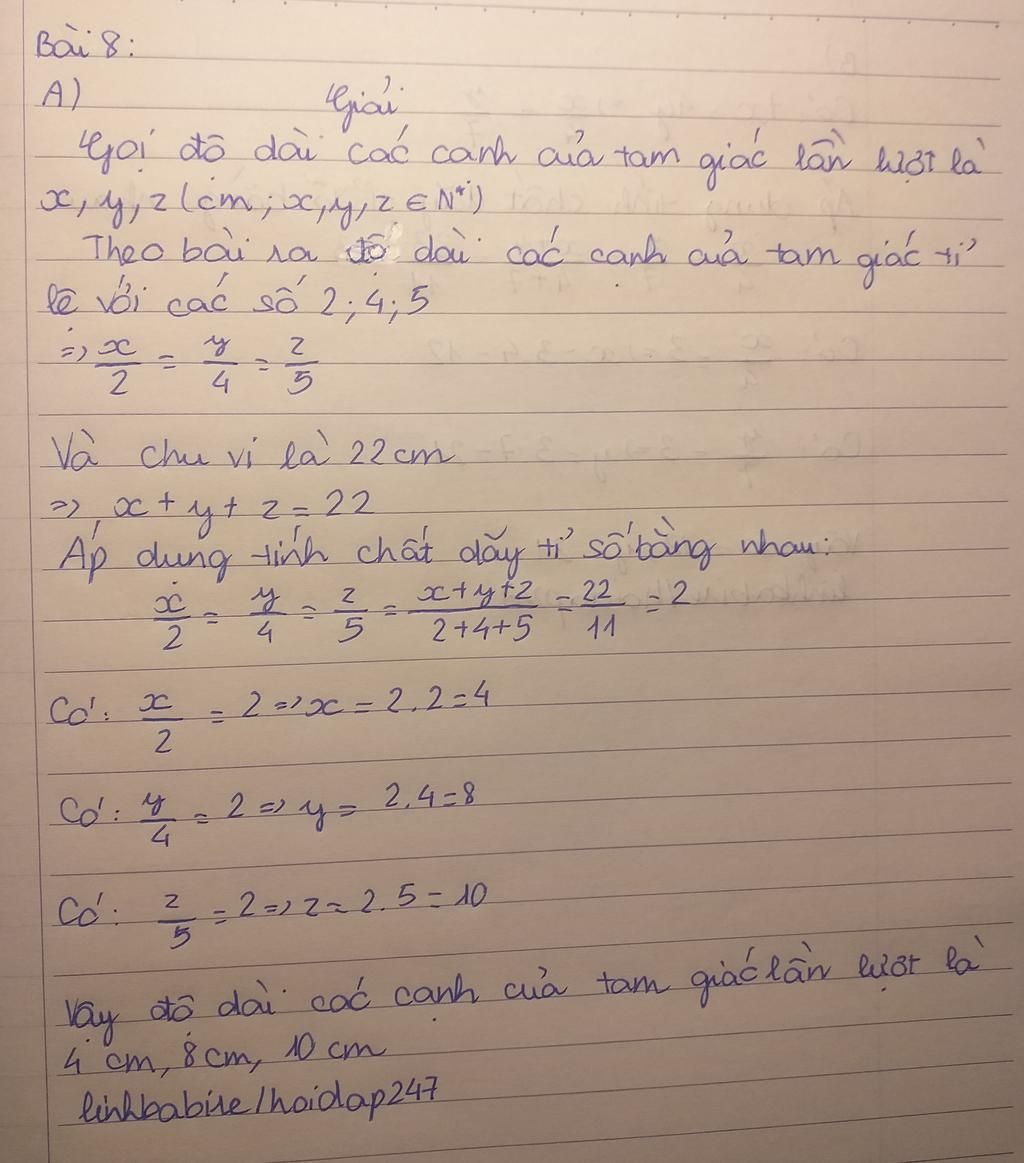 Bài 8:
A) Giải
Gọi độ dài các cạnh của tam giác lần lượt là
x, y, z (cm; x, y, z ∈ N*)
Theo bài ra độ dài các cạnh của tam giác tỉ
lệ với các số 2; 4; 5
=> x/2 = y/4 = z/5
Và chu vi là 22 cm
=> x + y + z = 22
Áp dụng tính chất dãy tỉ số bằng nhau:
x/2 = y/4 = z/5 = (x+y+z)/(2+4+5) = 22/11 = 2
Có: x/2 = 2 => x = 2.2 = 4
Có: y/4 = 2 => y = 2.4 = 8
Có: z/5 = 2 => z = 2.5 = 10
Vậy độ dài các cạnh của tam giác lần lượt là
4 cm, 8 cm, 10 cm
linhbabire/hoidap247